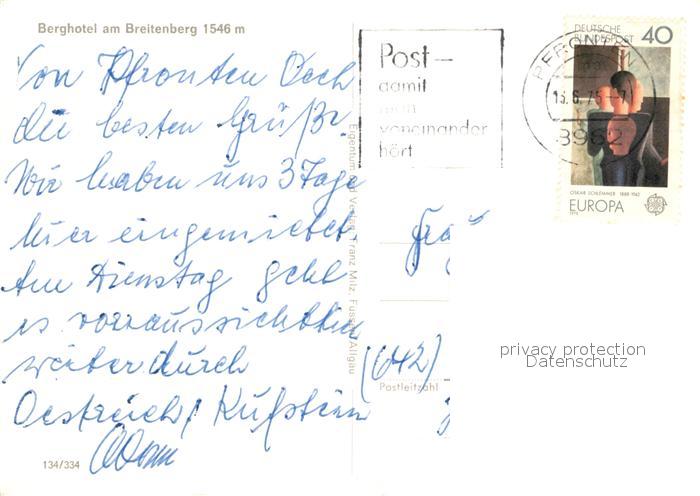 Berghotel am Breitenberg 1546 m
Von Pfronten Dech
die besten Grüße.
Wir haben uns 3 Tage
hier eingemietet.
Am Dienstag geht
es vorraussichtlich
weiter durch
Oestreich, Kufstein
134/334
Eigentum und Verlag Franz Milz, Füssen/Allgäu
Post –
damit
man
voneinander
hört
PFRONTEN
13.6.75-7
8962
DEUTSCHE
BUNDESPOST 40
OSKAR SCHLEMMER 1888-1943
EUROPA
1975
(642)
Postleitzahl
privacy protection
Datenschutz